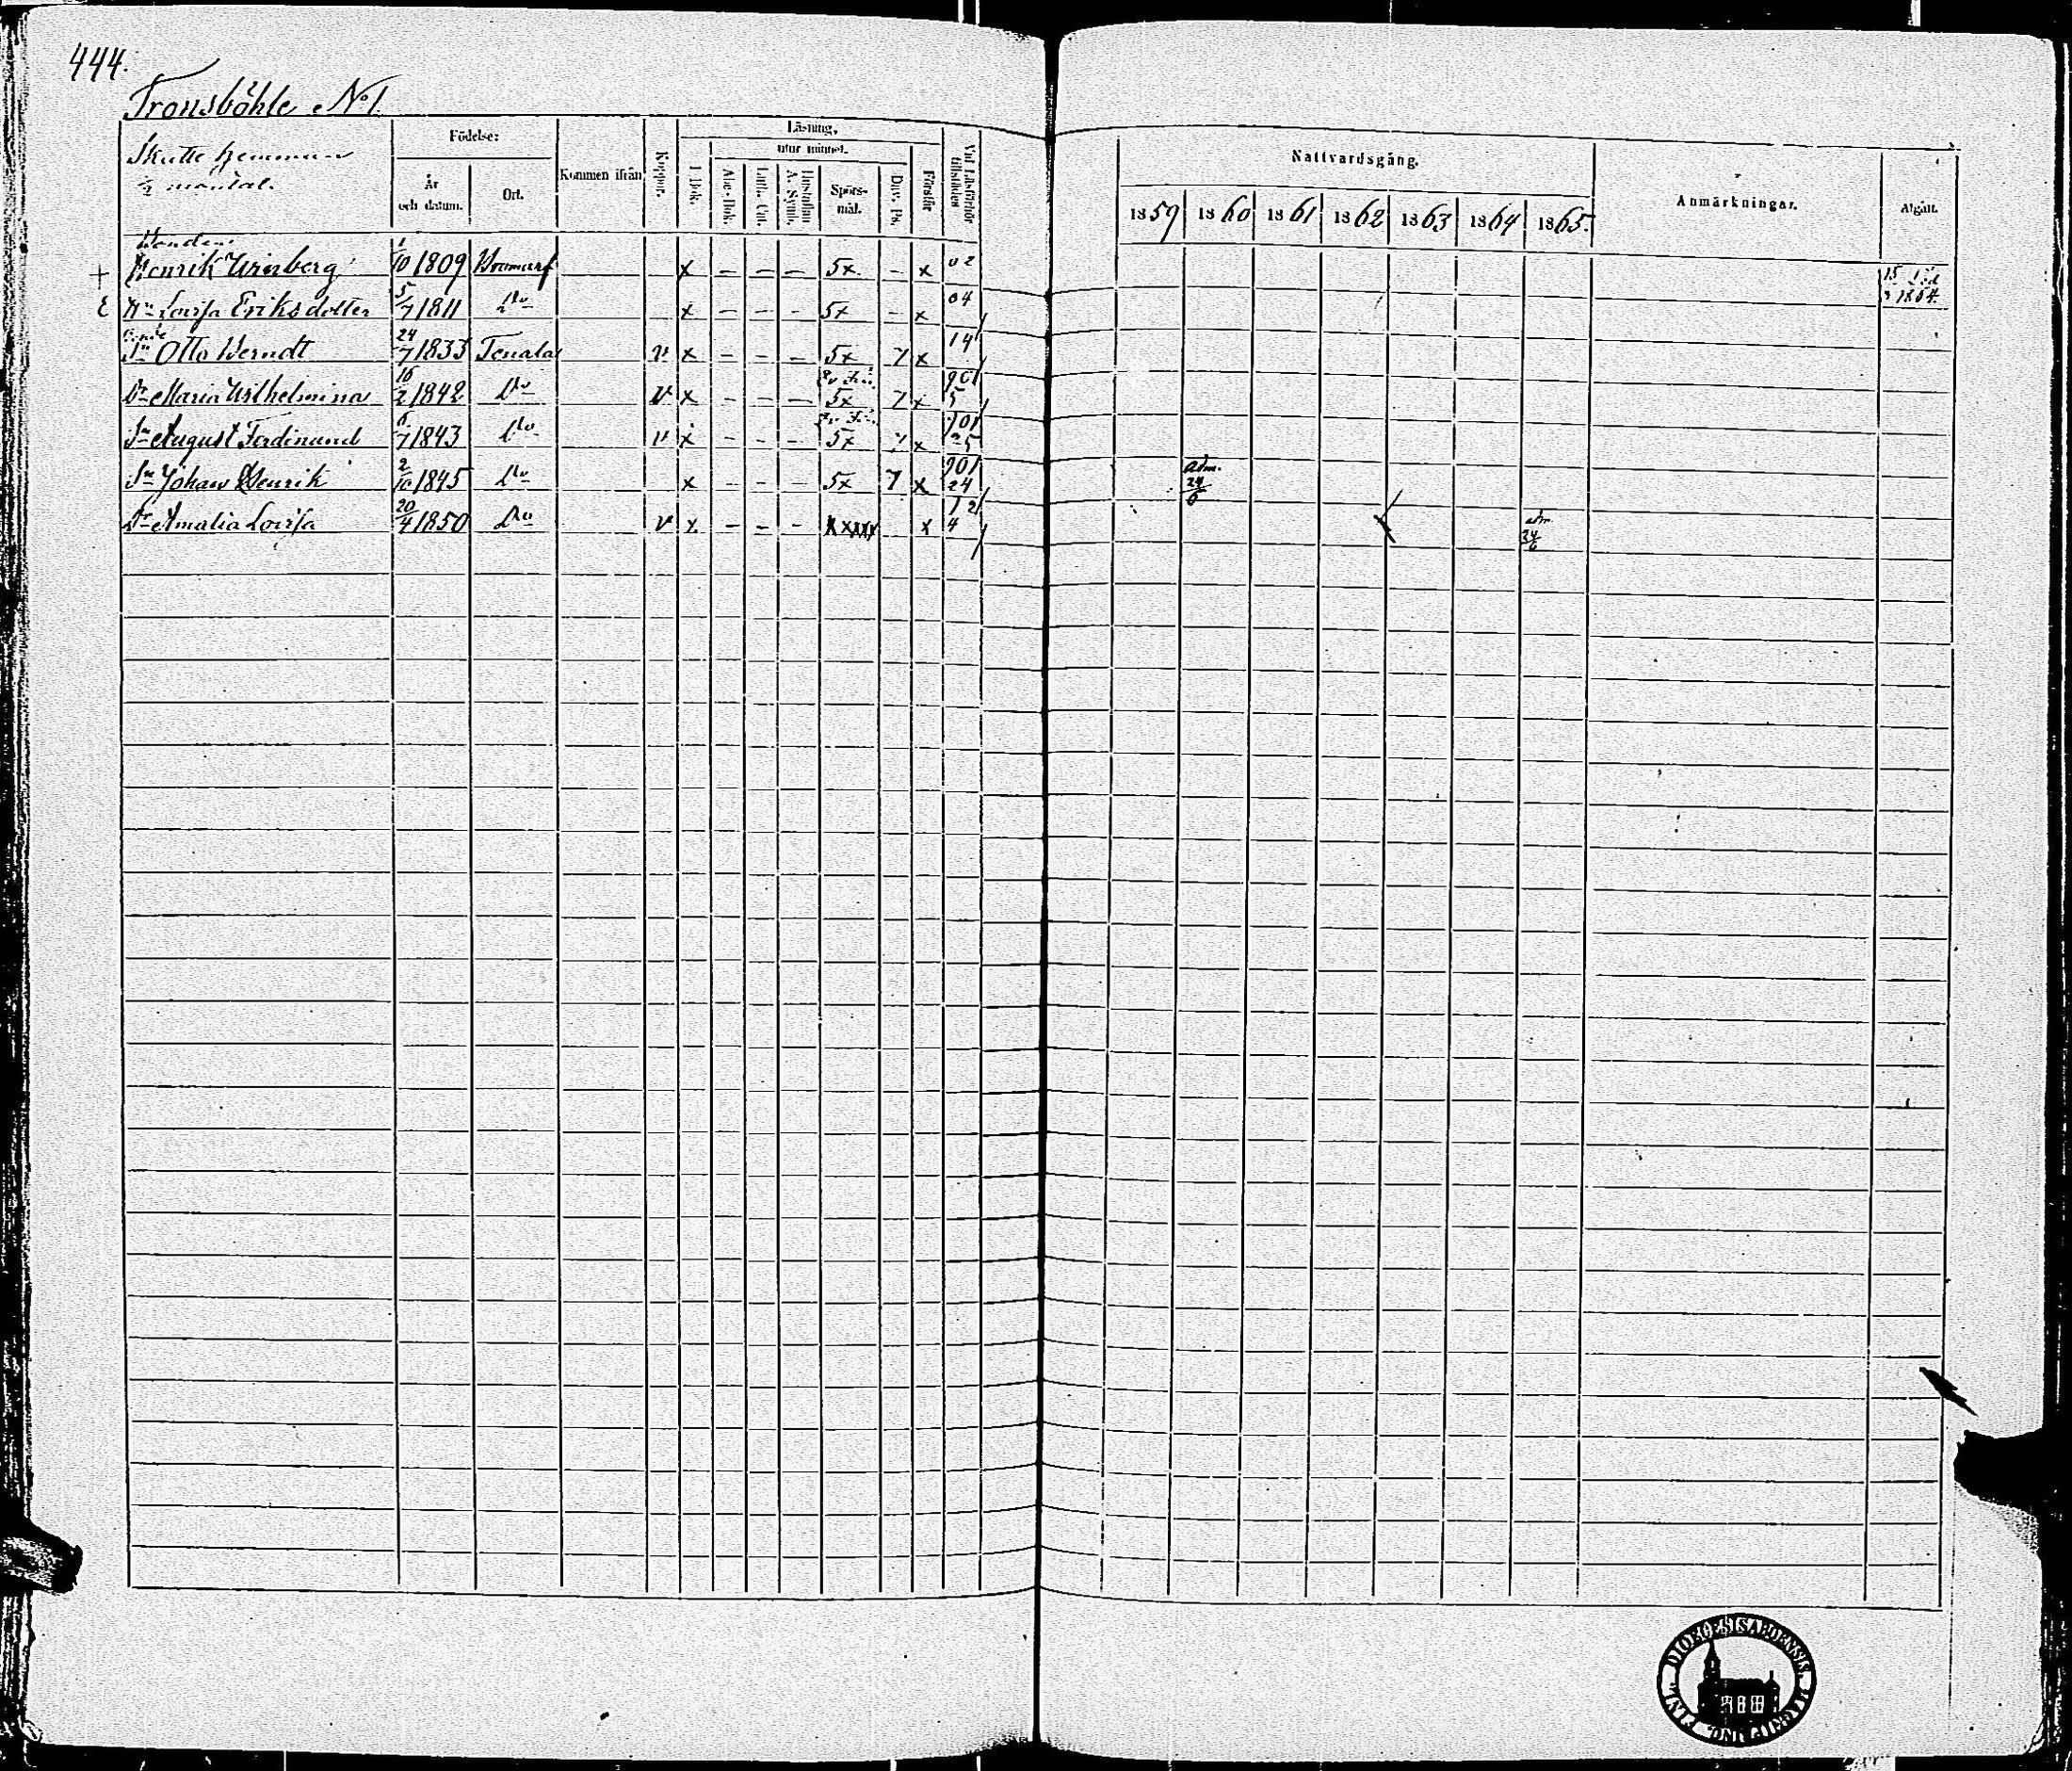 444.
Tronsböhle No 1.
Skatte hemman
½ mantal.
Födelse:
År
och datum.
Ort.
Kommen ifrån
Koppor.
Läsning,
utur minnet.
I Bok.
Abc-Bok.
Luth. Cat.
Hustaflan
A. Symb.
Spörs-
mål.
Dav. Ps.
Förstår
Vid Läsförhör
tillstädes
Nattvardsgång.
1859 1860 1861 1862 1863 1864 1865.
Anmärkningar.
Afgått.
Bonden
+ Henrik Winberg 1/10 1809 Bromarf x – – – 5x – x
E Hu Lovisa Eriksdotter 5/7 1811 Do x – – – 5x – x 04
Sn Otto Berndt 24/7 1833 Tenala v x – – – 5x 7 x 14
Dr Maria Wilhelmina 16/2 1842 Do v x – – – 5x 7 x
Sn August Ferdinand 6/7 1843 Do v x – – – 5x 7 x
Sn Johan Henrik 2/10 1845 Do x – – – 5x 7 x adm. 24/6
Dr Amalia Lovisa 20/4 1850 Do v x – – – x adm 24/6
1864.
DIOECESIS ABOENSIS